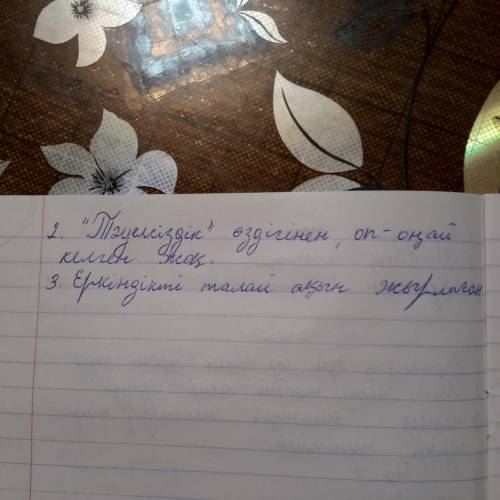 2. "Тәуелсіздік" өздігінен, оп-оңай
келген жоқ.
3. Еркіндікті талай ақын жырлаған